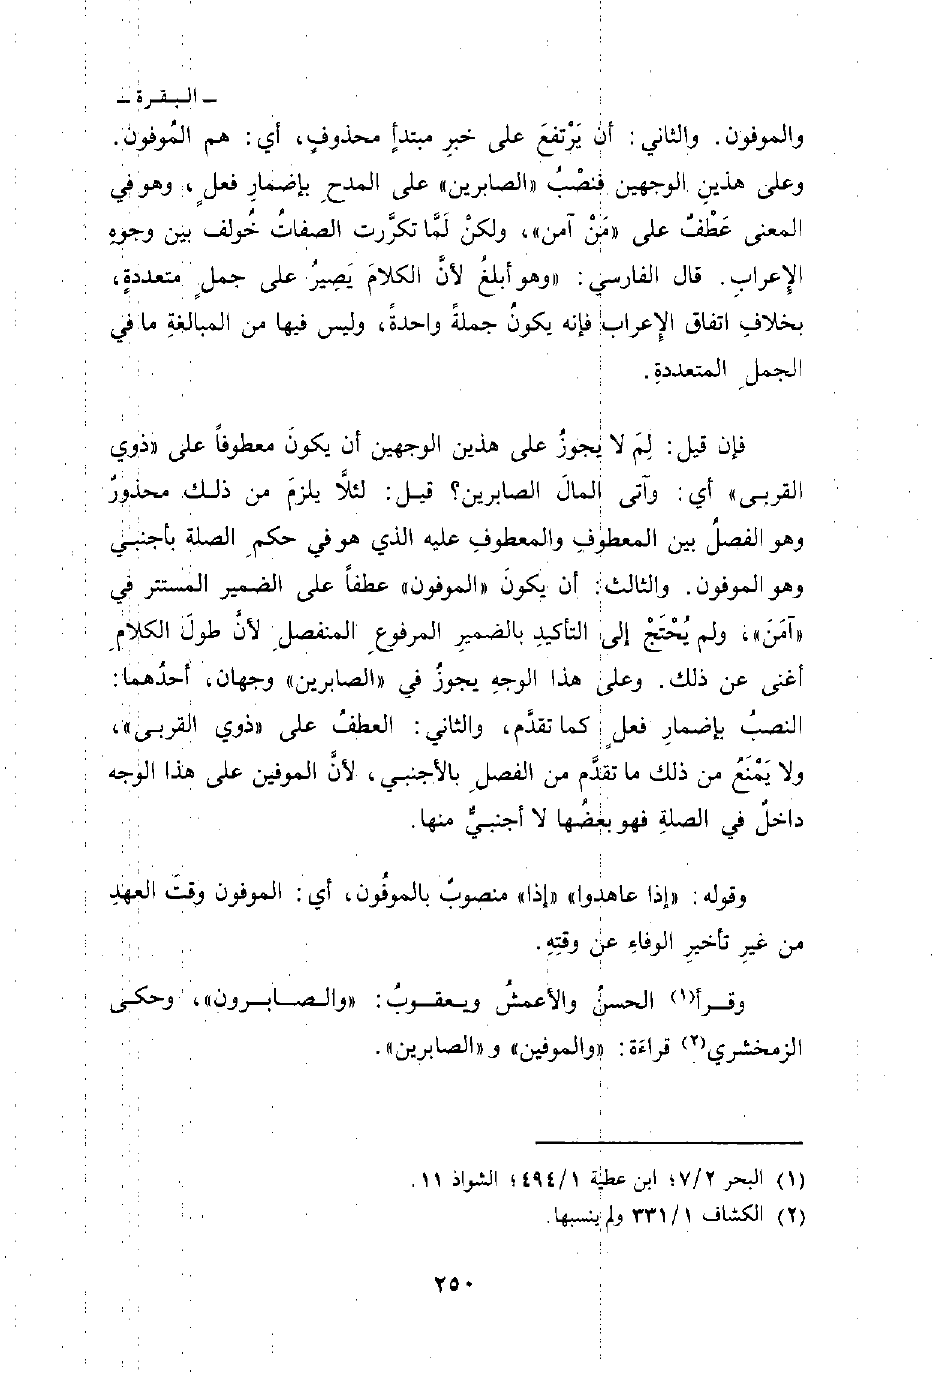 ـ البقرة ـ
والموفون. والثاني: أن يَرْتفعَ على خبرِ مبتدأٍ محذوفٍ، أي: هم المُوفون.
وعلى هذينِ الوجهين فنصْبُ «الصابرين» على المدحِ بإضمارِ فعلٍ، وهو في
المعنى عَطْفٌ على «مَنْ آمن»، ولكنْ لَمَّا تكرَّرت الصفاتُ خُولف بين وجوهِ
الإِعرابِ. قال الفارسي: «وهو أبلغُ لأنَّ الكلامَ يَصِيرُ على جملٍ متعددةٍ،
بخلافِ اتفاق الإِعراب فإنه يكونُ جملةً واحدةً، وليس فيها من المبالغةِ ما في
الجملِ المتعددةِ.
فإن قيل: لِمَ لا يجوزُ على هذين الوجهين أن يكونَ معطوفاً على «ذوي
القربى» أي: وآتى المالَ الصابرين؟ قيل: لئلَّا يلزمَ من ذلك محذورٌ
وهو الفصلُ بين المعطوفِ والمعطوفِ عليه الذي هو في حكمِ الصلة بأجنبي
وهو الموفون. والثالث: أن يكونَ «الموفون» عطفاً على الضمير المستتر في
«آمَنَ»، ولم يُحْتَجْ إلى التأكيدِ بالضميرِ المرفوعِ المنفصلِ لأنَّ طولَ الكلامِ
أغنى عن ذلك. وعلى هذا الوجهِ يجوزُ في «الصابرين» وجهان، أحدُهما:
النصبُ بإضمارِ فعلٍ كما تقدَّم، والثاني: العطفُ على «ذوي القربى»،
ولا يَمْنَعُ من ذلك ما تقدَّم من الفصلِ بالأجنبي، لأنَّ الموفين على هذا الوجه
داخلٌ في الصلةِ فهو بعضُها لا أجنبيٌّ منها.
وقوله: «إذا عاهدوا» «إذا» منصوبٌ بالموفُون، أي: الموفون وقتَ العهدِ
من غيرِ تأخيرِ الوفاءِ عن وقتِهِ.
وقرأ(١) الحسنُ والأعمشُ ويعقوبُ: «والصابرون»، وحكى
الزمخشري(٢) قراءة: «والموفين» و «الصابرين».
(١) البحر ٧/٢؛ ابن عطية ٤٩٤/١؛ الشواذ ١١.
(٢) الكشاف ٣٣١/١ ولم ينسبها.
٢٥٠